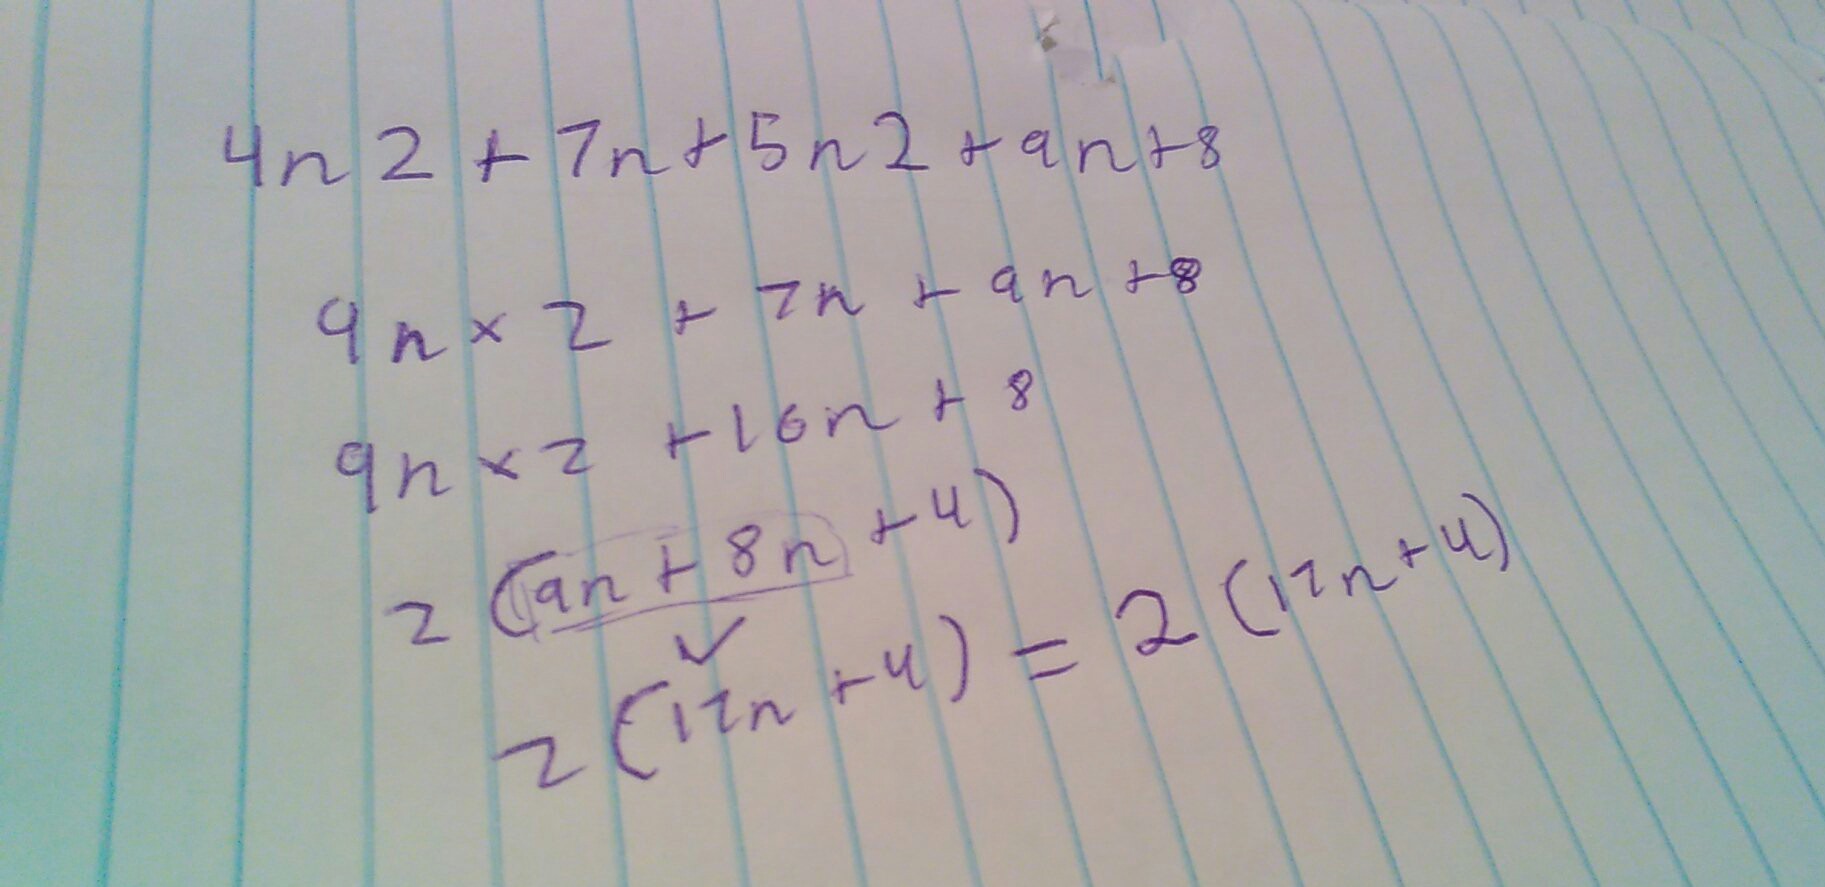 4n2 + 7n + 5n2 + 9n + 8
9n × 2 + 7n + 9n + 8
9n × 2 + 16n + 8
2 (9n + 8n + 4)
2 (17n + 4) = 2 (17n + 4)